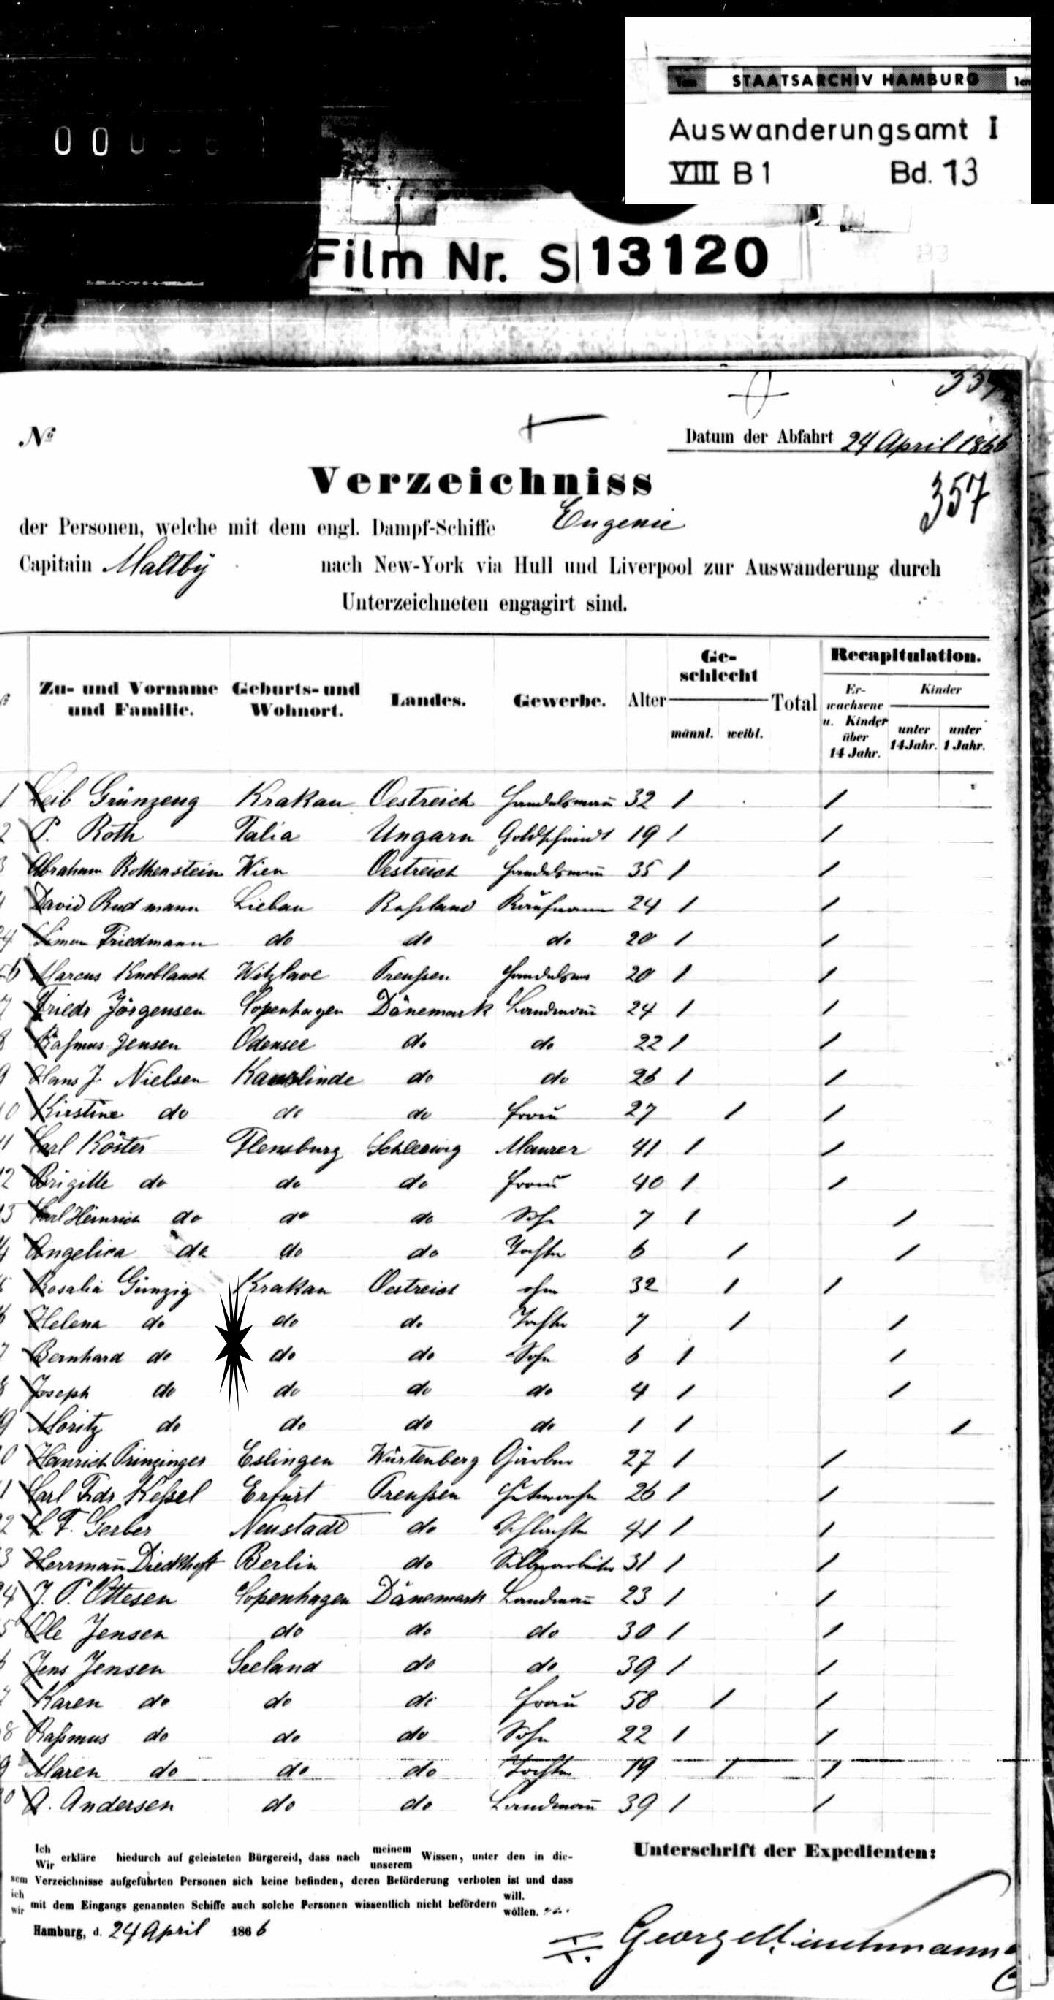 STAATSARCHIV HAMBURG
Auswanderungsamt I
VIII B 1 Bd. 13
Film Nr. S 13120
№ Datum der Abfahrt 24 April 1866
Verzeichniss
357
der Personen, welche mit dem engl. Dampf-Schiffe Eugenie
Capitain Maltby nach New-York via Hull und Liverpool zur Auswanderung durch
Unterzeichneten engagirt sind.
Zu- und Vorname und Familie. Geburts- und Wohnort. Landes. Gewerbe. Alter Geschlecht männl. weibl. Total Recapitulation. Erwachsene u. Kinder über 14 Jahr. Kinder unter 14 Jahr. unter 1 Jahr.
1 Leib Grünzeug Krakau Oestreich Handelsmann 32 1 1
2 P. Roth Talia Ungarn Goldschmidt 19 1 1
3 Abraham Rothenstein Wien Oestreich Handelsmann 35 1 1
David Rudmann Liebau Rußland Kaufmann 24 1 1
Simon Friedmann do do do 20 1 1
Marcus Knoblauch Preußen 20 1 1
7 Friedr Jörgensen Copenhagen Dänemark Landmann 24 1 1
8 Raßmus Jensen Odensee do do 22 1 1
9 Hans J. Nielsen do do 26 1 1
10 Kirstine do do do Frau 27 1 1
11 Carl Köster Flensburg Schleswig Maurer 41 1 1
12 Brigitte do do do Frau 40 1 1
13 Carl Heinrich do do do Sohn 7 1 1
14 Angelica do do do Tochter 6 1 1
Rosalia Günzig Krakau Oestreich ohne 32 1 1
Helena do do do Tochter 7 1 1
7 Bernhard do do do Sohn 6 1 1
8 Joseph do do do do 4 1 1
9 Moritz do do do do 1 1 1
Heinrich Prinzinger Eslingen Würtenberg Gärber 27 1 1
Carl Frdr Keßel Erfurt Preußen 26 1 1
F. Gerber Neustadt do Schlachter 41 1 1
Herrmañ Berlin do Silberarbeiter 31 1 1
24 J. P. Ottesen Copenhagen Dänemark Landmañ 23 1 1
5 Ole Jensen do do do 30 1 1
6 Jens Jensen Seeland do do 39 1 1
7 Karen do do do Frau 58 1 1
8 Raßmus do do do Sohn 22 1 1
9 Maren do do do Tochter 19 1 1
A. Andersen do do Landmañ 39 1 1
Ich Wir erkläre hiedurch auf geleisteten Bürgereid, dass nach meinem unserem Wissen, unter den in die-
sem Verzeichnisse aufgeführten Personen sich keine befinden, deren Beförderung verboten ist und dass
ich wir mit dem Eingangs genannten Schiffe auch solche Personen wissentlich nicht befördern will. wollen.
Hamburg, d. 24 April 1866
Unterschrift der Expedienten: